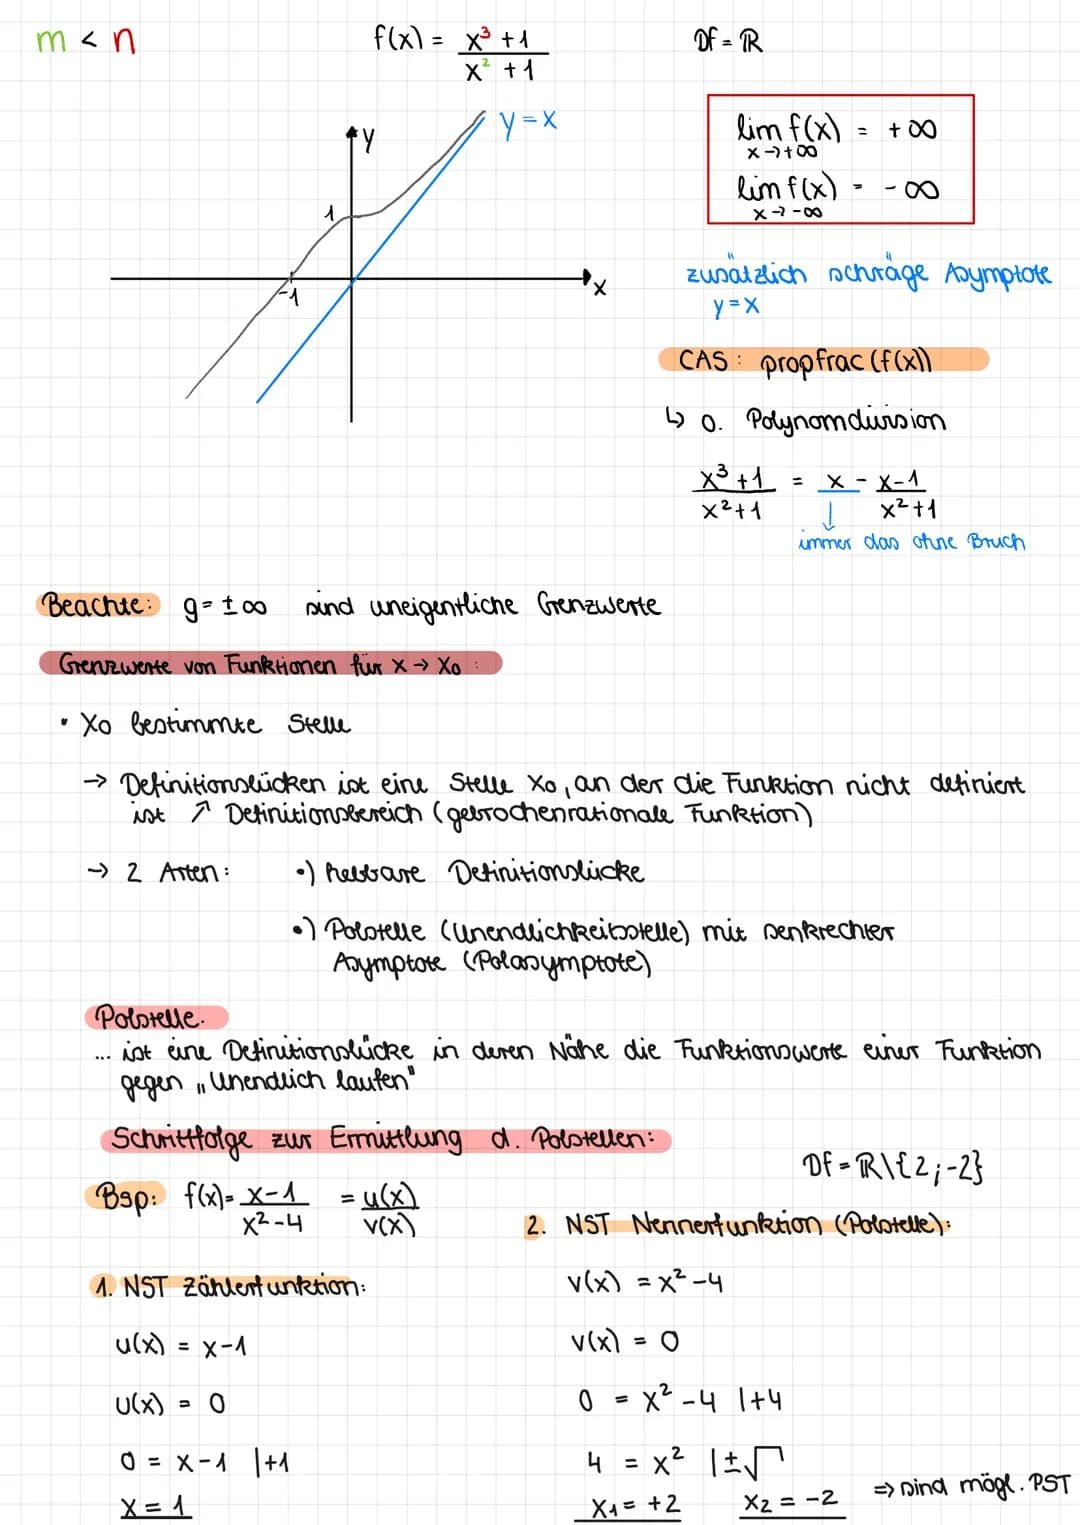 m < n
f(x) = x³ + 1 / x² + 1
Df = ℝ
y = x
y
1
-1
x
lim f(x) = + ∞
x → +∞
lim f(x) = - ∞
x → -∞
zusätzlich schräge Asymptote
y = x
CAS: propfrac (f(x))
↳ o. Polynomdivision
x³ + 1 / x² + 1 = x - x - 1 / x² + 1
immer das ohne Bruch
Beachte: g = ± ∞ sind uneigentliche Grenzwerte
Grenzwerte von Funktionen für x → x₀ :
• x₀ bestimmte Stelle
→ Definitionslücken ist eine Stelle x₀, an der die Funktion nicht definiert
ist ↗ Definitionsbereich (gebrochenrationale Funktion)
→ 2 Arten: •) hebbare Definitionslücke
•) Polstelle (Unendlichkeitsstelle) mit senkrechter
Asymptote (Polasymptote)
Polstelle.
... ist eine Definitionslücke in deren Nähe die Funktionswerte einer Funktion
gegen „Unendlich laufen"
Schrittfolge zur Ermittlung d. Polstellen:
Df = ℝ\{2 ; -2}
Bsp: f(x) = x - 1 / x² - 4 = u(x) / v(x)
1. NST Zählerfunktion:
u(x) = x - 1
u(x) = 0
0 = x - 1 | +1
x = 1
2. NST Nennerfunktion (Polstelle):
v(x) = x² - 4
v(x) = 0
0 = x² - 4 | +4
4 = x² | ±√
x₁ = +2 x₂ = -2 ⇒ sind mögl. PST